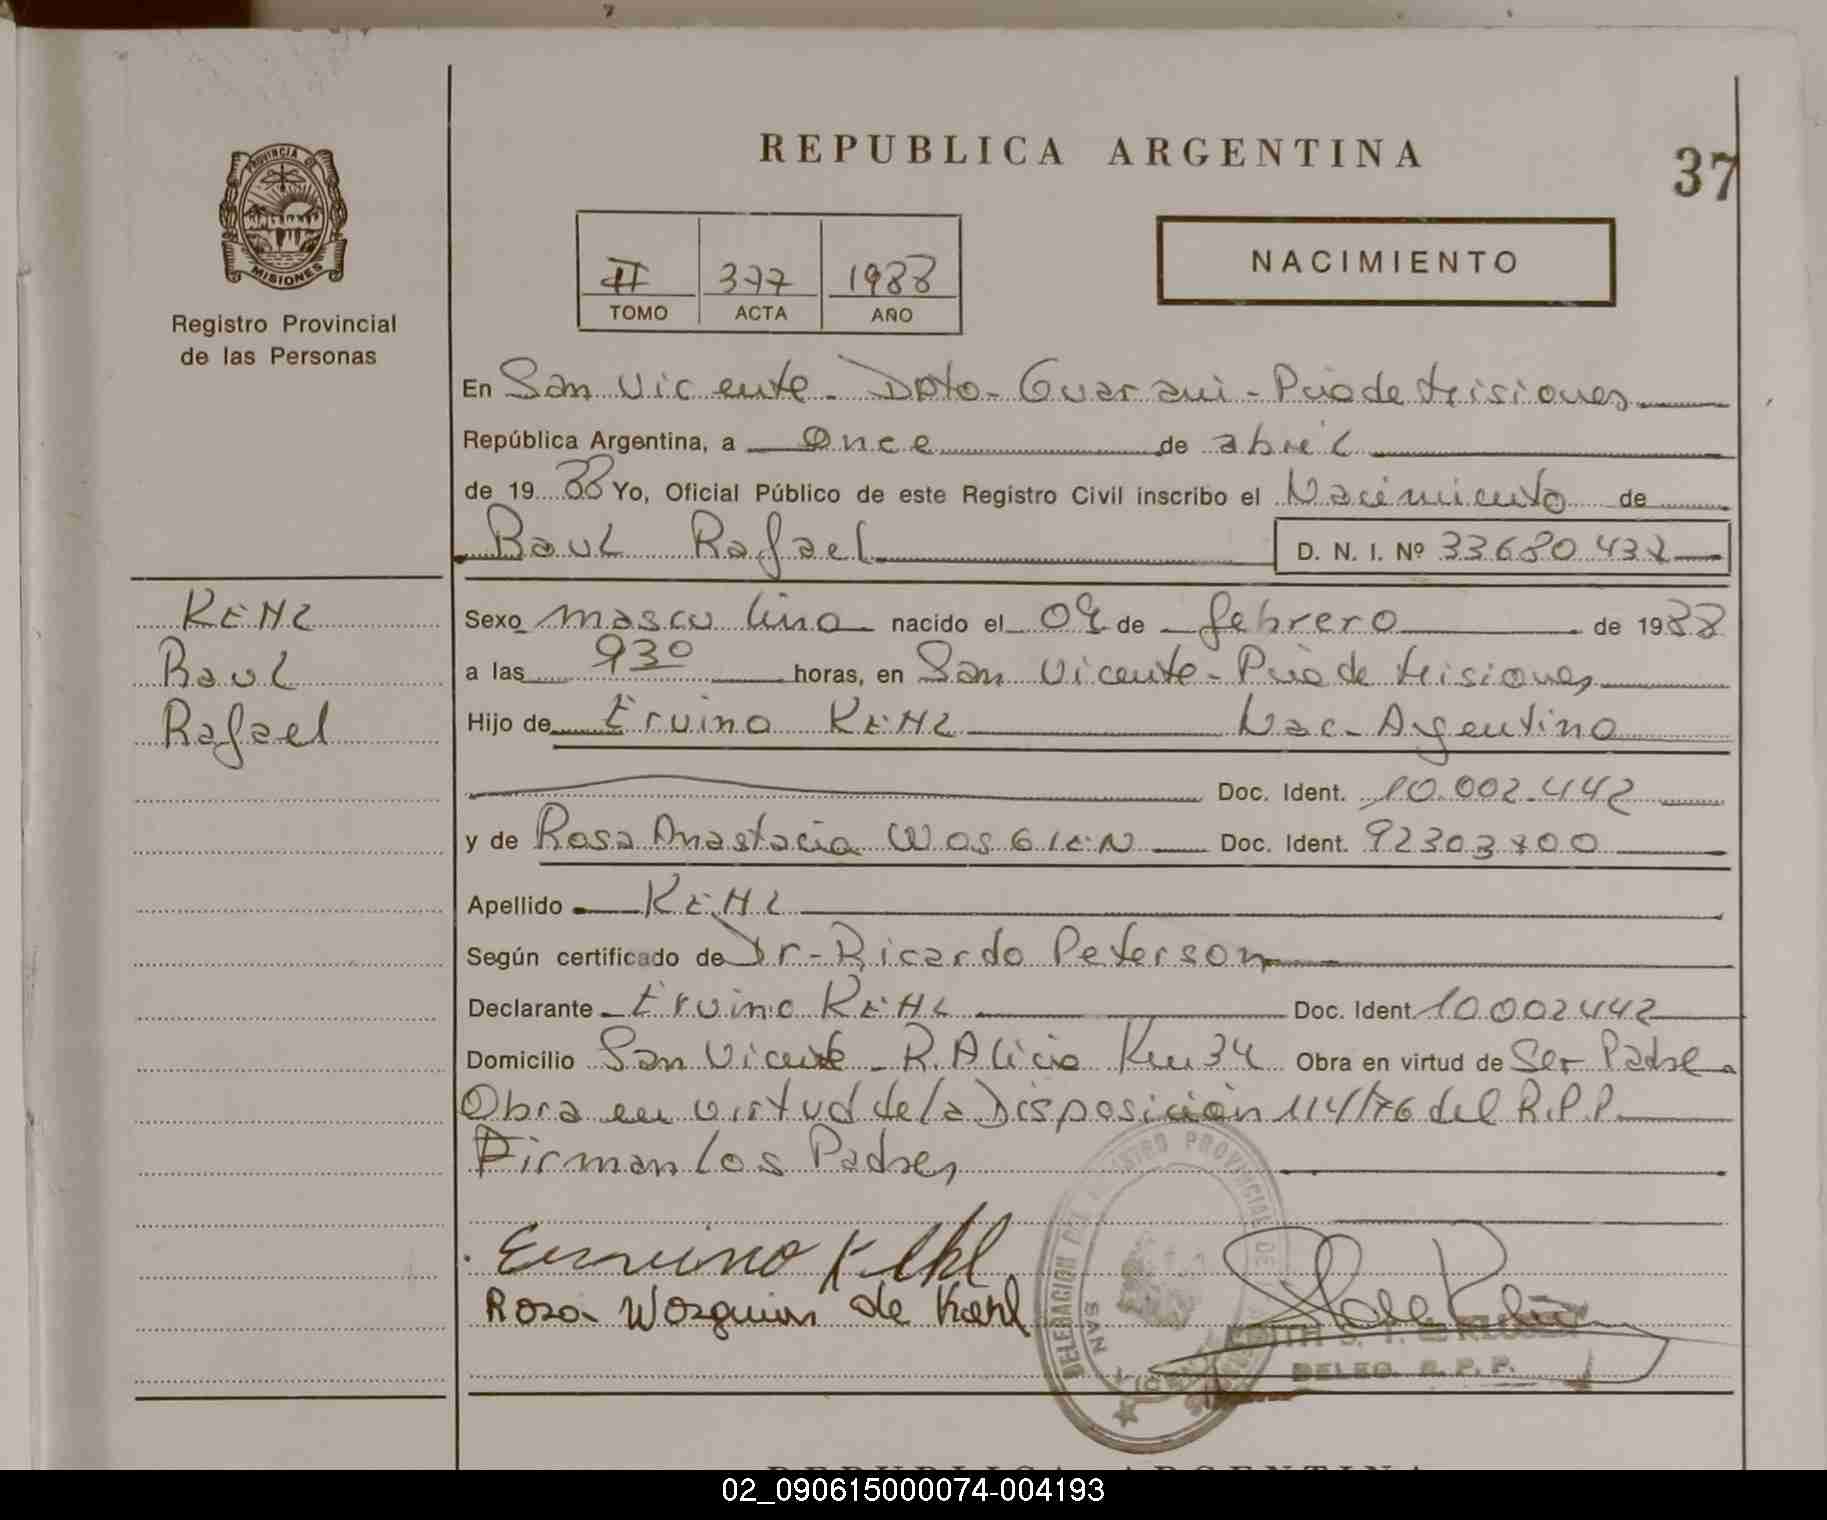 REPUBLICA ARGENTINA
37
PROVINCIA DE
MISIONES
Registro Provincial
de las Personas
II 377 1988
TOMO ACTA AÑO
NACIMIENTO
En San Vicente - Dpto - Guarani - Pcia de Misiones
República Argentina, a Once de abril
de 19 88 Yo, Oficial Público de este Registro Civil inscribo el Nacimiento de
Raul Rafael D. N. I. Nº 33680 432
KEHL
Raul
Rafael
Sexo masculino nacido el 09 de febrero de 1988
a las 930 horas, en San Vicente - Pcia de Misiones
Hijo de Ervino KEHL Nac - Argentino
Doc. Ident. 10.002.442
y de Rosa Anastacia WOSGIEN Doc. Ident. 92303700
Apellido KEHL
Según certificado de Dr - Ricardo Peterson
Declarante Ervino KEHL Doc. Ident 10002442
Domicilio San Vicente - R. Alicia Km 34 Obra en virtud de Ser Padre
Obra en virtud de la Disposición 114/76 del R.P.P.
Firman los Padres
Ervino Kehl
Rosa Wosguien de Kehl
DELEGACION DEL REGISTRO PROVINCIAL DE
SAN VICENTE
DELEG. R. P. P.
REPUBLICA ARGENTINA
02_090615000074-004193